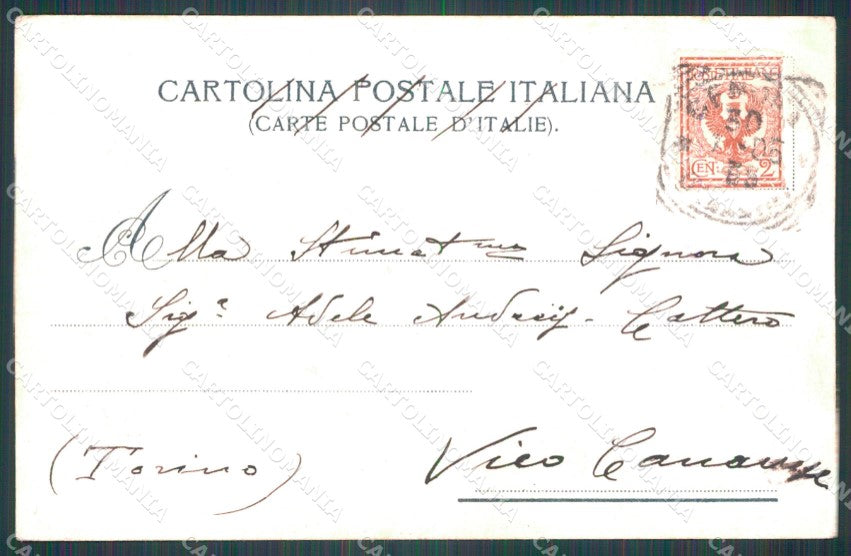 CARTOLINA POSTALE ITALIANA
(CARTE POSTALE D'ITALIE).
POSTE ITALIANE
CEN. 2
30
05
Alla Stimatma Signora
Sigra Adele Cattero
(Torino) Vico Canavese
CARTOLINOMANIA